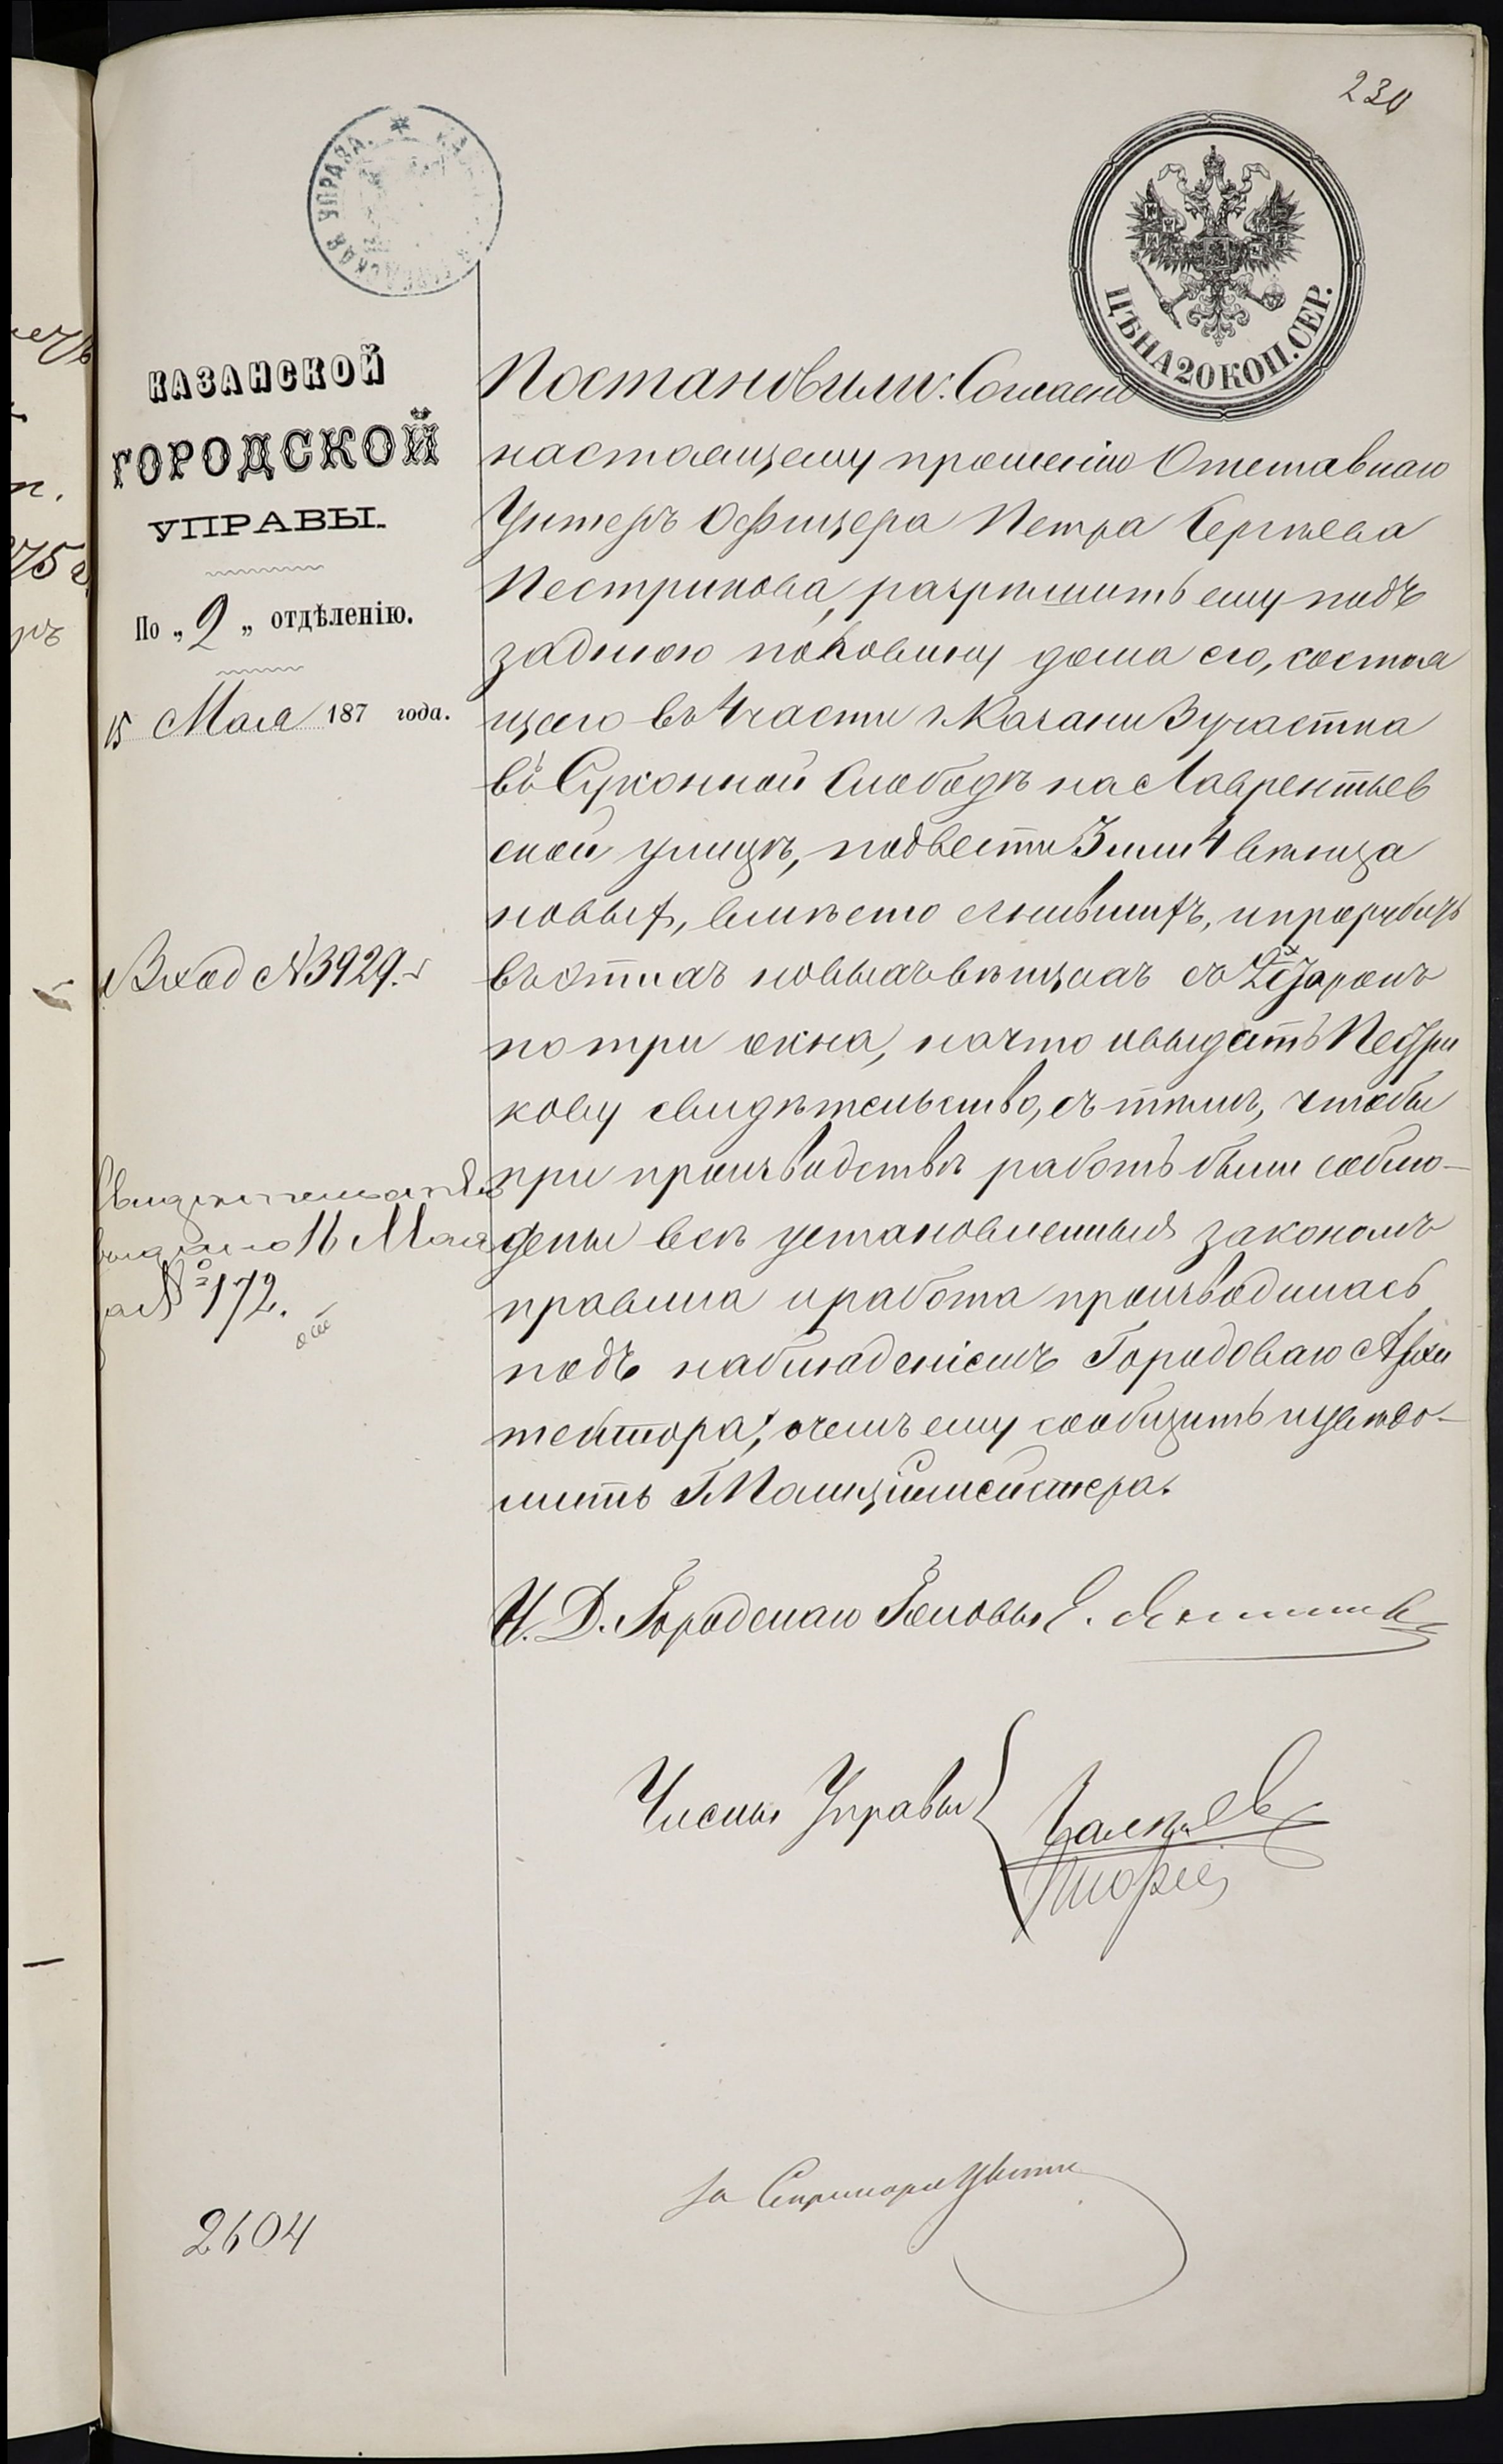 230
КАЗАНСКАЯ ГОРОДСКАЯ УПРАВА
ЦѢНА 20 КОП. СЕР.
КАЗАНСКОЙ
ГОРОДСКОЙ
УПРАВЫ.
По „2„ отдѣленію.
15 Мая 187 года.
Вход №3929.
Свидѣтельство
выдано 16 Мая
за № 172.
2604
Постановили: Согласно
настоящему прошенію Отставнаго
Унтеръ Офицера Петра Сергѣева
Пестрикова, разрѣшить ему подъ
заднюю половину дома его, состоя
щаго въ 4 части г. Казани 3 участка
въ Суконной Слободѣ на Лаврентьев
ской улицѣ, подвести 3 или 4 вѣнца
новых, вмѣсто сгнившихъ, и прорубить
въ этихъ новыхъ вѣнцахъ съ 2х сторонъ
по три окна, на что и выдать Пестри
кову свидѣтельство, съ тѣмъ, чтобы
при производствѣ работъ были соблю-
дены всѣ установленныя закономъ
правила и работа производилась
подъ наблюденіемъ Городоваго Архи
тектора; о чемъ ему сообщить и увѣдо-
мить Г. Полиціймейстера.
И. Д. Городскаго Головы Е.
Члены Управы
за Секретаря